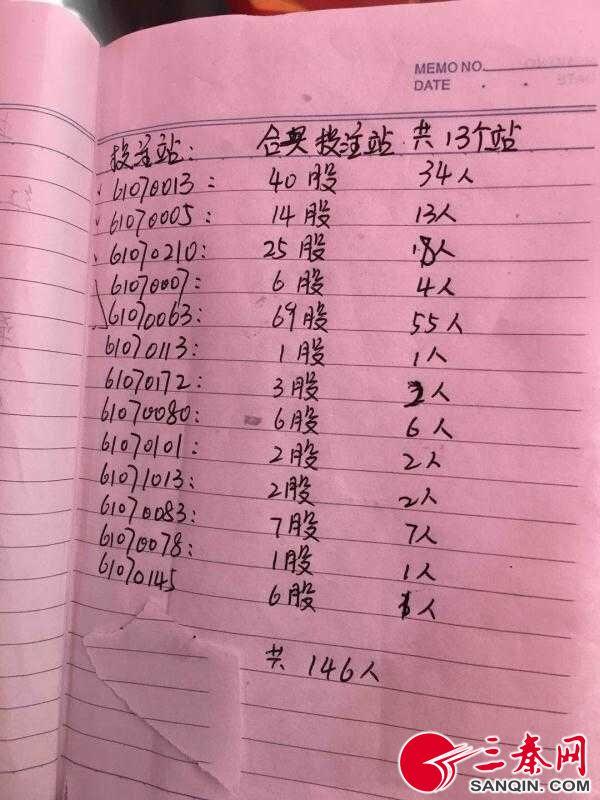 MEMO NO.
DATE . .
投注站: 合买投注站 共13个站
61070013: 40股 34人
61070005: 14股 13人
61070210: 25股 18人
61070007: 6股 4人
61070063: 69股 55人
61070113: 1股 1人
61070172: 3股 2人
61070080: 6股 6人
61070101: 2股 2人
61071013: 2股 2人
61070083: 7股 7人
61070078: 1股 1人
61070145 6股 1人
共 146人
三秦网
SANQIN.COM